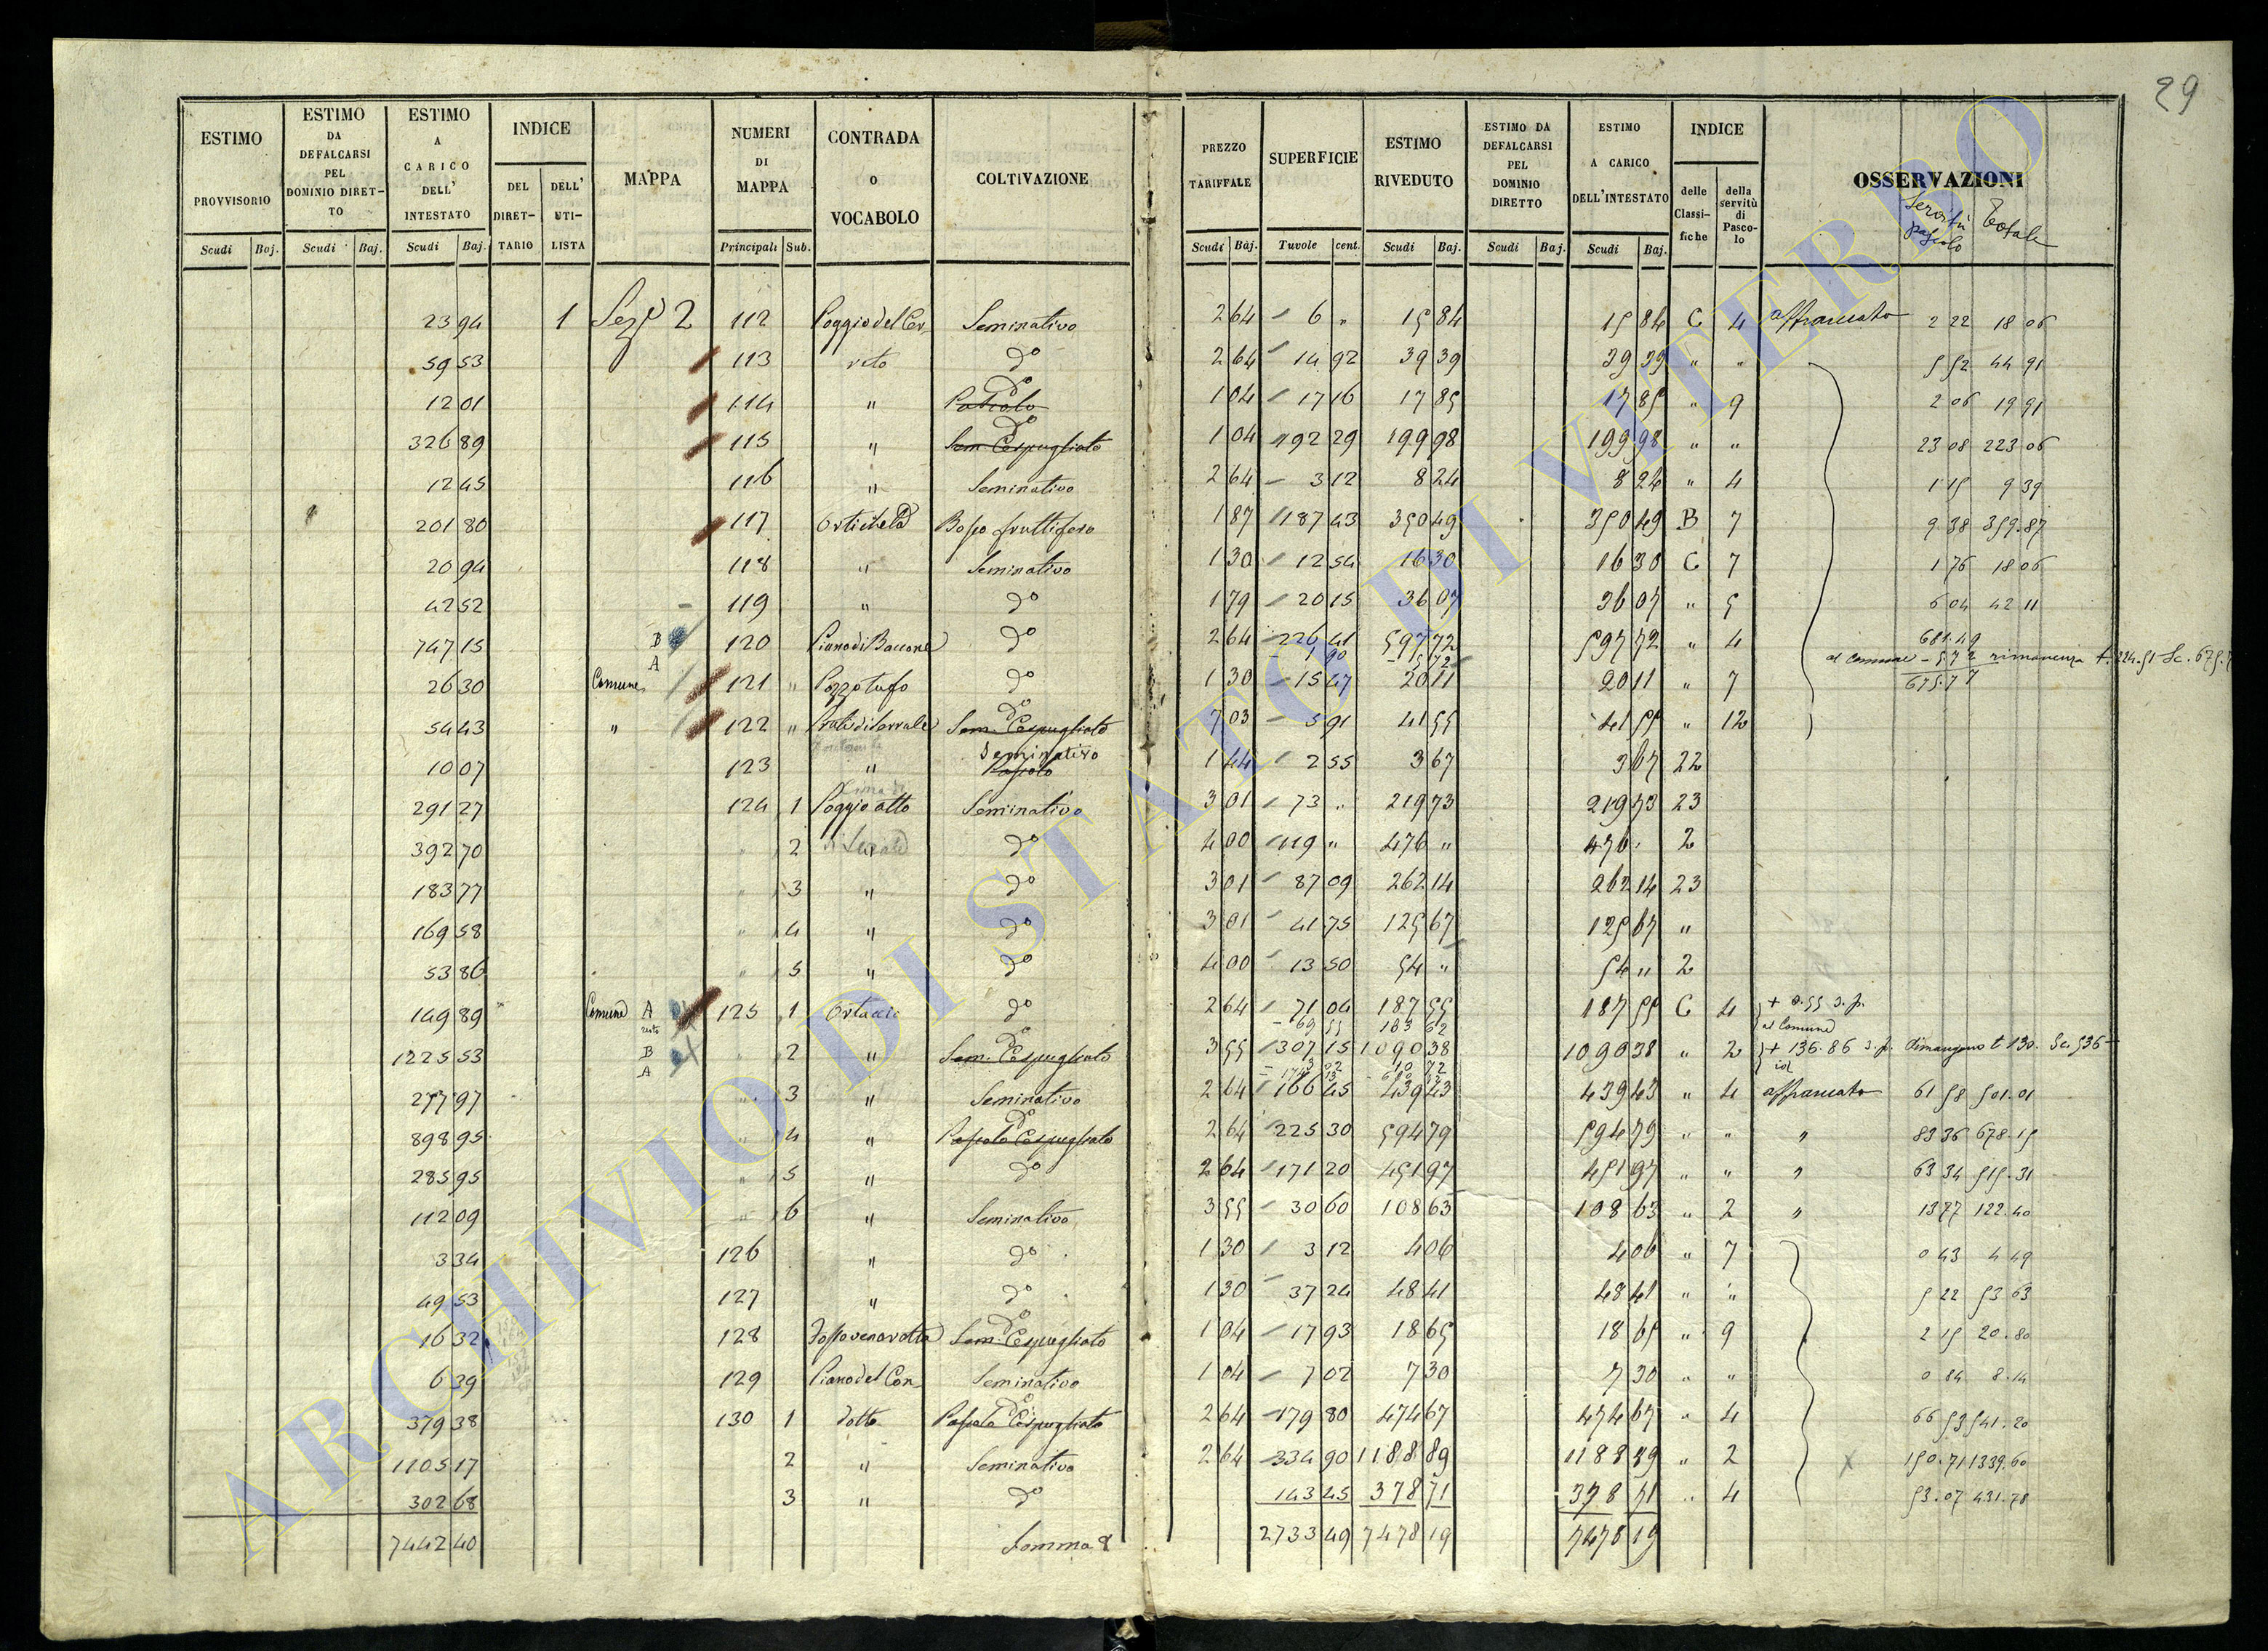 29
ESTIMO PROVVISORIO Scudi Baj. | ESTIMO DA DEFALCARSI PEL DOMINIO DIRET-TO Scudi Baj. | ESTIMO A CARICO DELL' INTESTATO Scudi Baj. | INDICE DEL DIRET-TARIO DELL' UTI-LISTA | MAPPA | NUMERI DI MAPPA Principali Sub. | CONTRADA O VOCABOLO | COLTIVAZIONE | PREZZO TARIFFALE Scudi Baj. | SUPERFICIE Tavole cent. | ESTIMO RIVEDUTO Scudi Baj. | ESTIMO DA DEFALCARSI PEL DOMINIO DIRETTO Scudi Baj. | ESTIMO A CARICO DELL'INTESTATO Scudi Baj. | INDICE delle Classi-fiche della servitù di Pasco-lo | OSSERVAZIONI servitù pascolo Totale
23 94 1 Sez.e 2 112 Poggio del Cer- Seminativo 2 64 6 " 15 84 15 84 C 4 affrancato 2 22 18 06
59 53 113 reto do 2 64 14 92 39 39 39 39 " " 5 52 44 91
12 01 114 " do Pascolo 1 04 17 16 17 85 17 85 " 9 2 06 19 91
326 89 115 " do Sem. Cespugliato 1 04 192 29 199 98 199 98 " " 23 08 223 06
12 45 116 " Seminativo 2 64 3 12 8 24 8 24 " 4 1 15 9 39
201 80 117 Bosco fruttifero 1 87 187 43 350 49 350 49 B 7 9 38 359.87
20 94 118 " Seminativo 1 30 12 54 16 30 16 30 C 7 1 76 18 06
42 52 119 " do 1 79 20 15 36 07 36 07 " 5 6 04 42 11
747 15 B 120 Piano di Baccone do 2 64 226 41 597 72 597 72 " 4 681.49
A 1 90 5 72 al Comune - 5.72 rimanenza t. 224.51 Sc. 675.
26 30 Comune 121 " Pozzo tufo do 1 30 15 47 20 11 20 11 " 7 675.77
54 43 " 122 " do Sem. Cespugliato 7 03 5 91 41 55 41 55 " 12
10 07 123 " Seminativo Pascolo 1 44 2 55 3 67 3 67 22
291 27 124 1 Poggio alto Seminativo 3 01 73 " 219 73 219 73 23
392 70 " 2 " do 4 00 119 " 476 " 476 " 2
183 77 " 3 " do 3 01 87 09 262 14 262 14 23
169 58 " 4 " do 3 01 41 75 125 67 125 67 "
53 86 " 5 " do 4 00 13 50 54 " 54 " 2
149 89 Comune A resto 125 1 Ortaccio do 2 64 71 04 187 55 187 55 C 4 + 0.55 s.p.
69 55 183 62 al Comune
1225 53 B A " 2 " do Sem. Cespugliato 3 55 307 15 1090 38 1090 38 " 2 + 136.86 s.p. rimangono t 130. Sc. 536
id
277 97 " 3 " Seminativo 2 64 166 45 439 43 439 43 " 4 affrancato 61 58 501.01
898 95 " 4 " do Pascolo Cespugliato 2 64 225 30 594 79 594 79 " " " 83 36 678.15
285 95 " 5 " do 2 64 171 20 451 97 451 97 " " " 63 34 515.31
112 09 " 6 " Seminativo 3 55 30 60 108 63 108 63 " 2 " 13 77 122.40
3 34 126 " do 1 30 3 12 4 06 4 06 " 7 0 43 4 49
49 53 127 " do 1 30 37 24 48 41 48 41 " " 5 22 53 63
16 32 128 do Sem. Cespugliato 1 04 17 93 18 65 18 65 " 9 2 15 20.80
6 39 129 Piano del Con- Seminativo 1 04 7 02 7 30 7 30 " " 0 84 8.14
379 38 130 1 dotto do Pascolo Cespugliato 2 64 179 80 474 67 474 67 " 4 66 53 541.20
1105 17 2 " Seminativo 2 64 334 90 1188 89 1188 89 " 2 X 150.71 1339.60
302 68 3 " do 143 45 378 71 378 71 " 4 53.07 431.78
7442 40 Somma 2733 49 7478 19 7478 19
ARCHIVIO DI STATO DI VITERBO